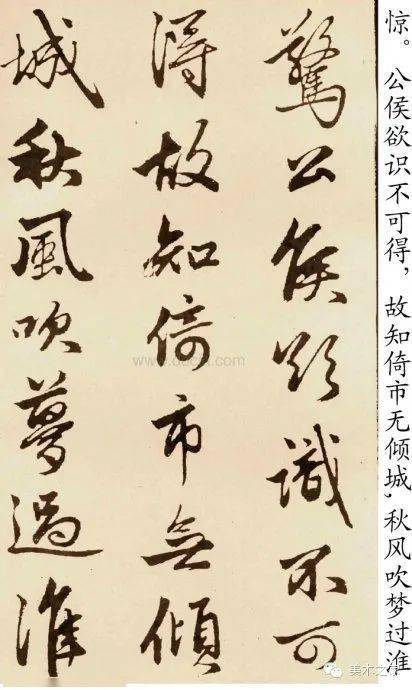 惊。公侯欲识不可得，故知倚市无倾城，秋风吹梦过淮
驚公侯欲識不可
得故知倚市無傾
城秋風吹夢過淮